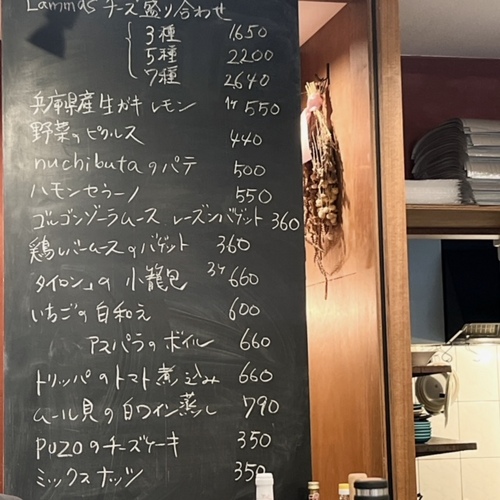 Lammas チーズ盛り合わせ
3種 1650
5種 2200
7種 2640
兵庫県産生ガキ レモン 1ケ 550
野菜のピクルス 440
nuchibutaのパテ 500
ハモンセラーノ 550
ゴルゴンゾーラムース レーズンバゲット 360
鶏レバームースのバゲット 360
「タイロン」の 小籠包 3ケ 660
いちごの白和え 600
アスパラのボイル 660
トリッパのトマト煮込み 660
ムール貝の白ワイン蒸し 790
POZOのチーズケーキ 350
ミックスナッツ 350